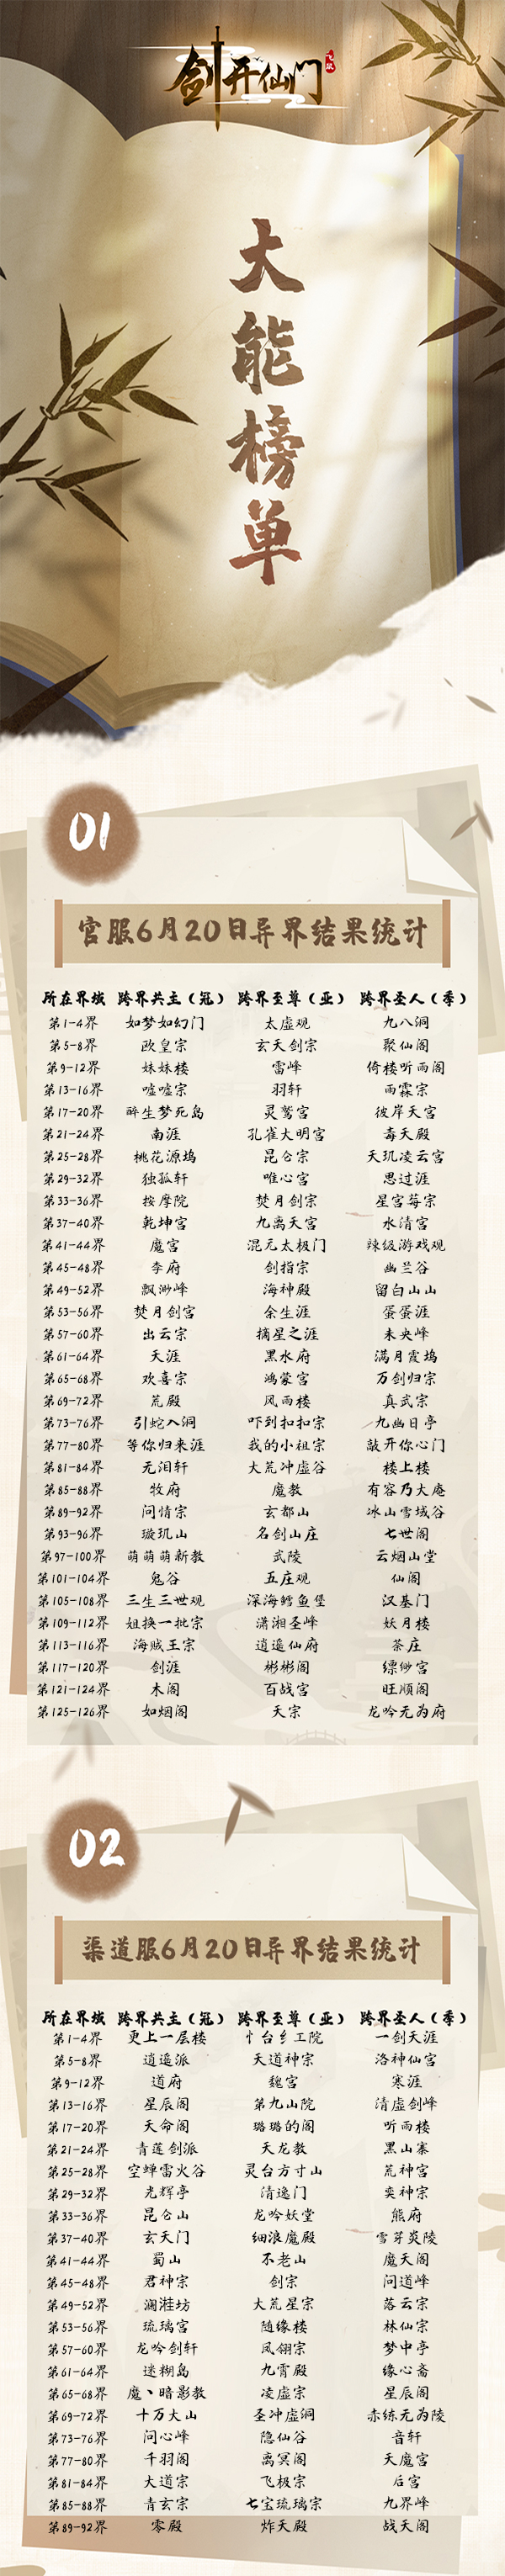 剑开仙门
飞鼠
大能榜单
01
官服6月20日异界结果统计
所在界域 跨界共主（冠） 跨界至尊（亚） 跨界圣人（季）
第1-4界 如梦如幻门 太虚观 九八洞
第5-8界 欧皇宗 玄天剑宗 聚仙阁
第9-12界 妹妹楼 雷峰 倚楼听雨阁
第13-16界 嘘嘘宗 羽轩 雨霖宗
第17-20界 醉生梦死岛 灵鹫宫 彼岸天宫
第21-24界 南涯 孔雀大明宫 毒天殿
第25-28界 桃花源坞 昆仑宗 天玑凌云宫
第29-32界 独孤轩 唯心宫 思过涯
第33-36界 按摩院 焚月剑宗 星宫莓宗
第37-40界 乾坤宫 九离天宫 水清宫
第41-44界 魔宫 混元太极门 辣级游戏观
第45-48界 李府 剑指宗 幽兰谷
第49-52界 飘渺峰 海神殿 留白山山
第53-56界 焚月剑宫 余生涯 蛋蛋涯
第57-60界 出云宗 摘星之涯 未央峰
第61-64界 天涯 黑水府 满月霞坞
第65-68界 欢喜宗 鸿蒙宫 万剑归宗
第69-72界 荒殿 风雨楼 真武宗
第73-76界 引蛇入洞 吓到扣扣宗 九幽日亭
第77-80界 等你归来涯 我的小祖宗 敲开你心门
第81-84界 元泪轩 大荒冲虚谷 楼上楼
第85-88界 牧府 魔教 有容乃大庵
第89-92界 问情宗 玄都山 冰山雪域谷
第93-96界 璇玑山 名剑山庄 七世阁
第97-100界 萌萌萌新教 武陵 云烟山堂
第101-104界 鬼谷 五庄观 仙阁
第105-108界 三生三世观 深海鳕鱼堡 汉基门
第109-112界 姐换一批宗 潇湘圣峰 妖月楼
第113-116界 海贼王宗 逍遥仙府 茶庄
第117-120界 剑涯 彬彬阁 缥缈宫
第121-124界 木阁 百战宫 旺顺阁
第125-126界 如烟阁 天宗 龙吟元为府
02
渠道服6月20日异界结果统计
所在界域 跨界共主（冠） 跨界至尊（亚） 跨界圣人（季）
第1-4界 更上一层楼 忄台纟工院 一剑天涯
第5-8界 逍遥派 天道神宗 洛神仙宫
第9-12界 道府 魏宫 寒涯
第13-16界 星辰阁 第九山院 清虚剑峰
第17-20界 天命阁 璐璐的阁 听雨楼
第21-24界 青莲剑派 天龙教 黑山寨
第25-28界 空蝉雷火谷 灵台方寸山 荒神宫
第29-32界 光辉亭 清逸门 奕神宗
第33-36界 昆仑山 龙吟妖堂 熊府
第37-40界 玄天门 细浪魔殿 雪芽炎陵
第41-44界 蜀山 不老山 魔天阁
第45-48界 君神宗 剑宗 问道峰
第49-52界 澜湉坊 大荒星宗 落云宗
第53-56界 琉璃宫 随缘楼 林仙宗
第57-60界 龙吟剑轩 凤翎宗 梦中亭
第61-64界 迷糊岛 九霄殿 缘心斋
第65-68界 魔丶暗影教 凌虚宗 星辰阁
第69-72界 十万大山 圣冲虚洞 赤练元为陵
第73-76界 问心峰 隐仙谷 音轩
第77-80界 千羽阁 离冥阁 天魔宫
第81-84界 大道宗 飞极宗 后宫
第85-88界 青玄宗 七宝琉璃宗 九界峰
第89-92界 零殿 炸天殿 战天阁